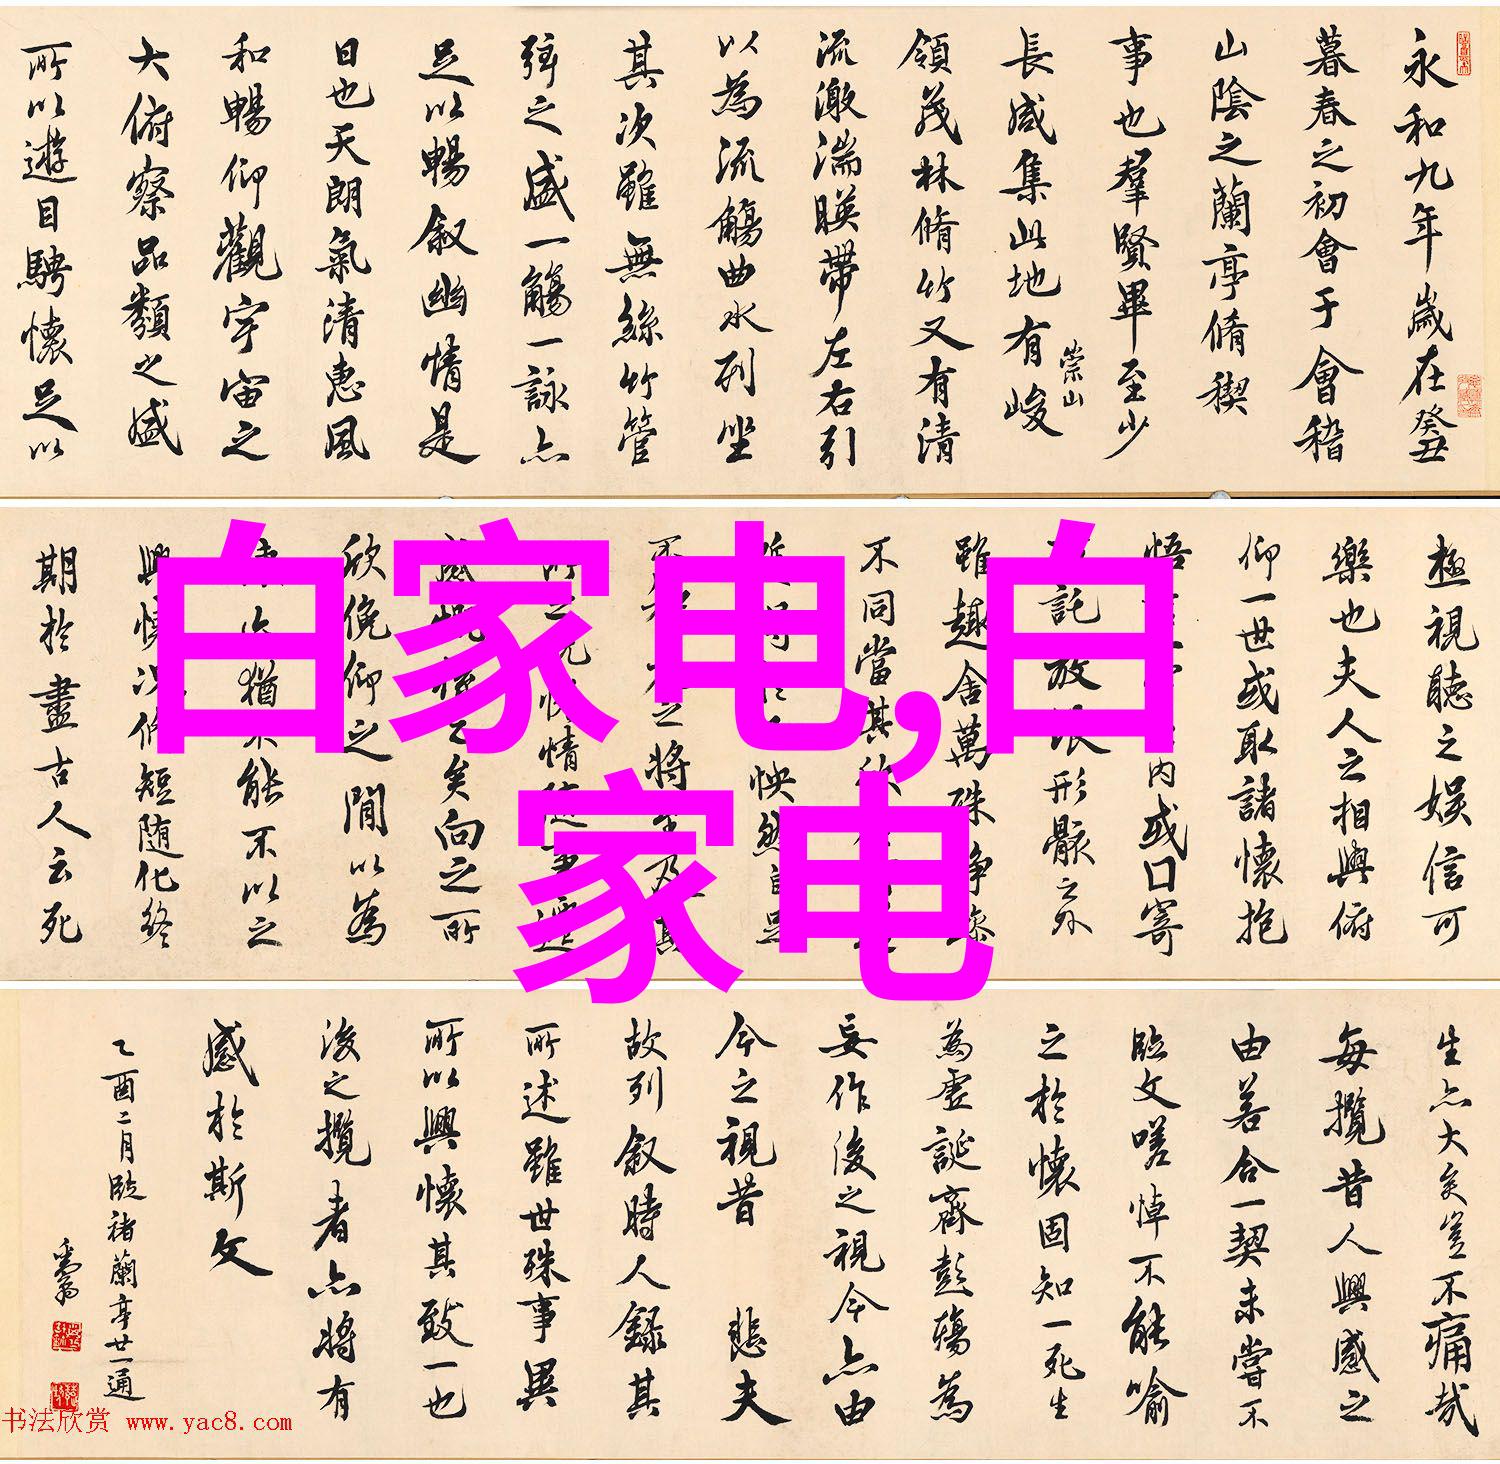 永和九年歲在癸丑
暮春之初會于會稽
山陰之蘭亭脩稧
事也羣賢畢至少
長咸集此地有峻
崇山
領茂林脩竹又有清
流激湍暎帶左右引
以為流觴曲水列坐
其次雖無絲竹管
弦之盛一觴一詠亦
足以暢叙幽情是
日也天朗氣清惠風
和暢仰觀宇宙之
大俯察品類之盛
所以遊目騁懷足以
極視聽之娛信可
樂也夫人之相與俯
仰一世或取諸懷抱
悟內或口寄
託放浪形骸之外
雖趣舍萬殊靜
不同當其欣
怏然
之將其
情隨事遷
矣向之所
欣俛仰之閒以為
猶不能不以之
興懷況脩短随化終
期於盡古人云死
生亦大矣豈不痛哉
每攬昔人興感之
由若合一契未嘗不
臨文嗟悼不能喻
之於懷固知一死生
為虛誕齊彭殤為
妄作後之視今亦由
今之視昔 悲夫
故列叙時人錄其
所述雖世殊事異
所以興懷其致一也
後之攬者亦將有
感於斯文
乙酉二月臨褚蘭亭廿一通
白家电,白
家电
书法欣赏 www.yac8.com